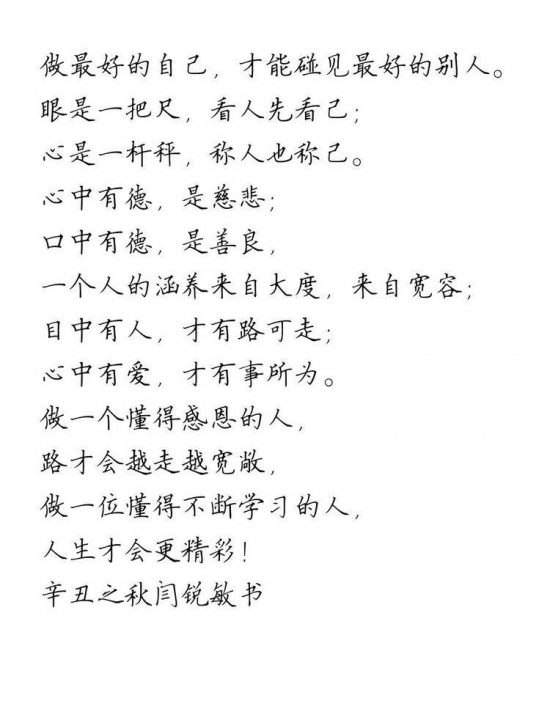 做最好的自己，才能碰见最好的别人。
眼是一把尺，看人先看己；
心是一杆秤，称人也称己。
心中有德，是慈悲；
口中有德，是善良，
一个人的涵养来自大度，来自宽容；
目中有人，才有路可走；
心中有爱，才有事所为。
做一个懂得感恩的人，
路才会越走越宽敞，
做一位懂得不断学习的人，
人生才会更精彩！
辛丑之秋闫锐敏书